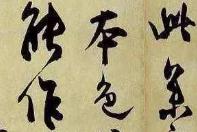 此
本色
能作